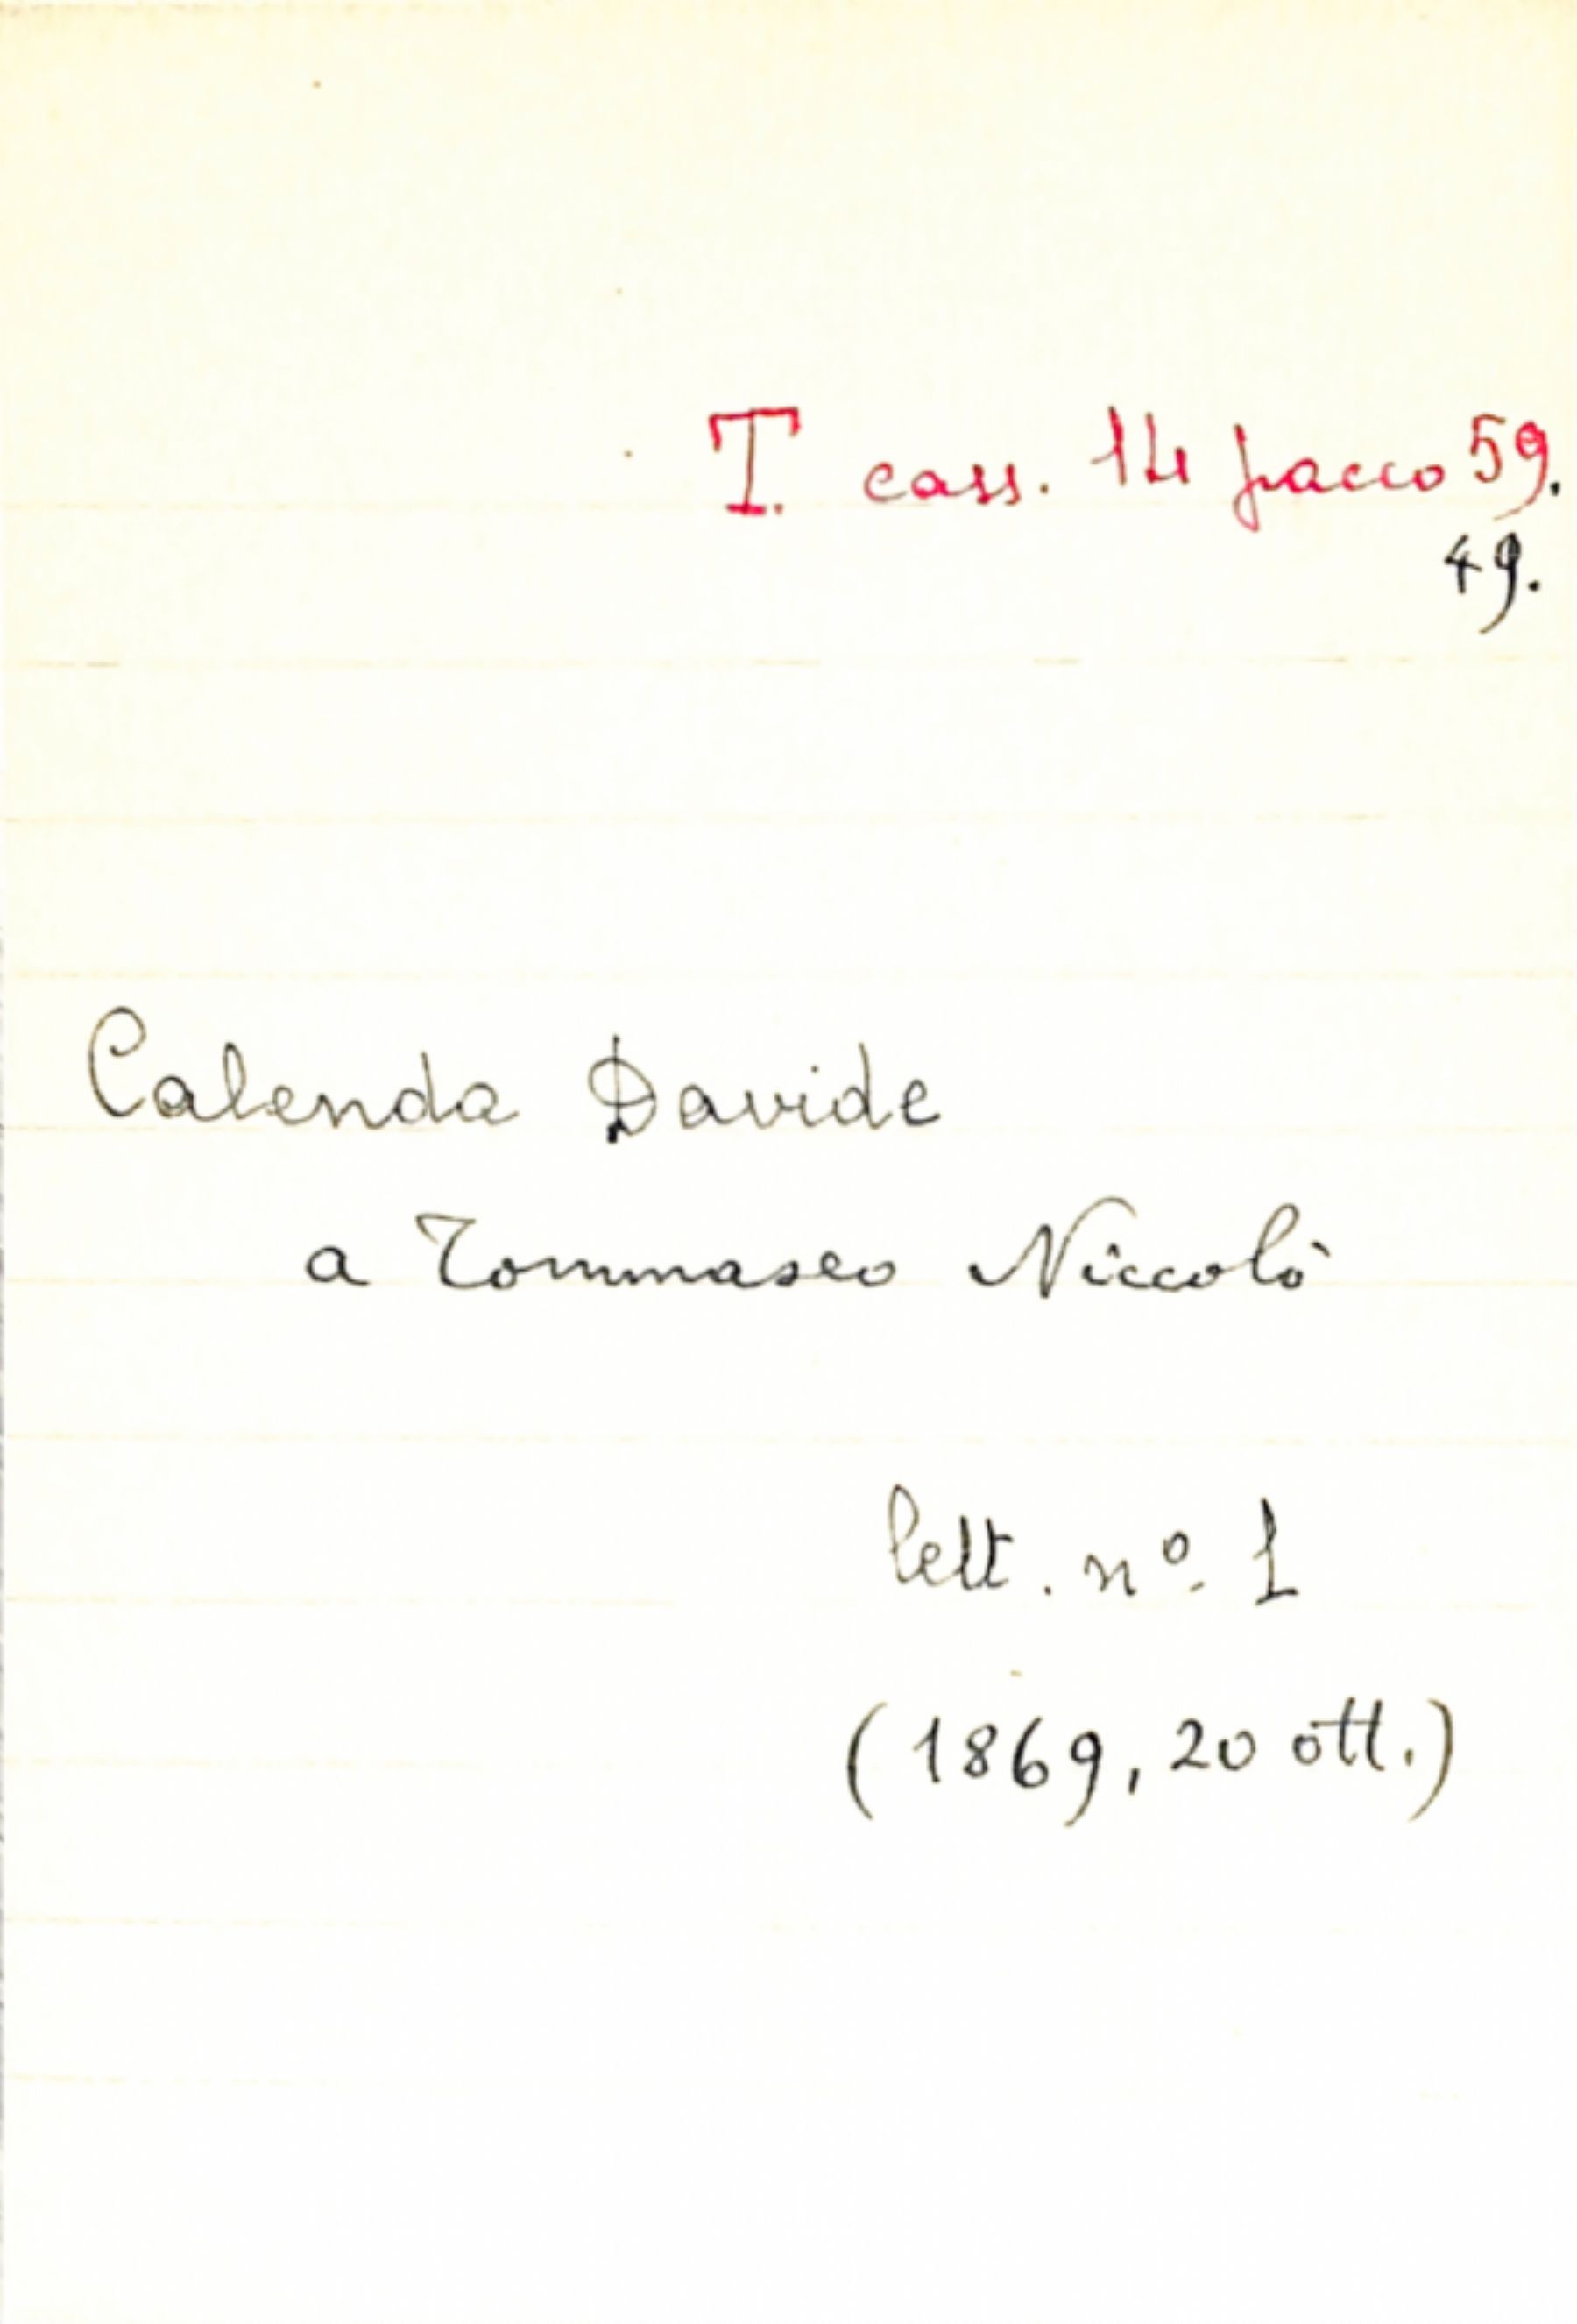 T. cass. 14 pacco 59.
49.
Calenda Davide
a Tommaseo Niccolò
lett. nº 1
(1869, 20 ott.)